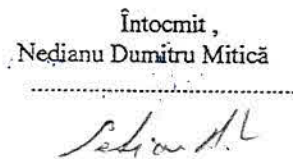 Întocmit ,
Nedianu Dumitru Mitică